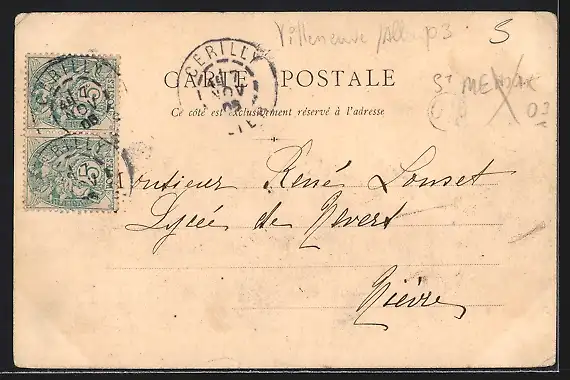 Villeneuve /Allier p3
5
CERILLY
CARTE POSTALE
ST MENOUX
03
Ce côté est exclusivement réservé à l'adresse
CERILLY
CERILLY
Monsieur René Lonset
Lycée de Nevers
Nièvre